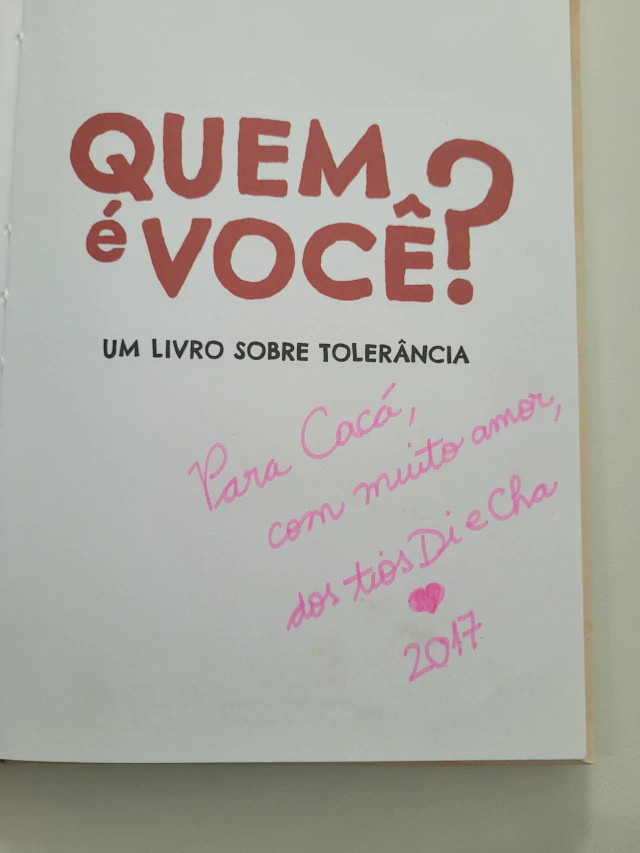 QUEM
é VOCÊ?
UM LIVRO SOBRE TOLERÂNCIA
Para Cacá,
com muito amor,
dos tios Di e Cha
2017